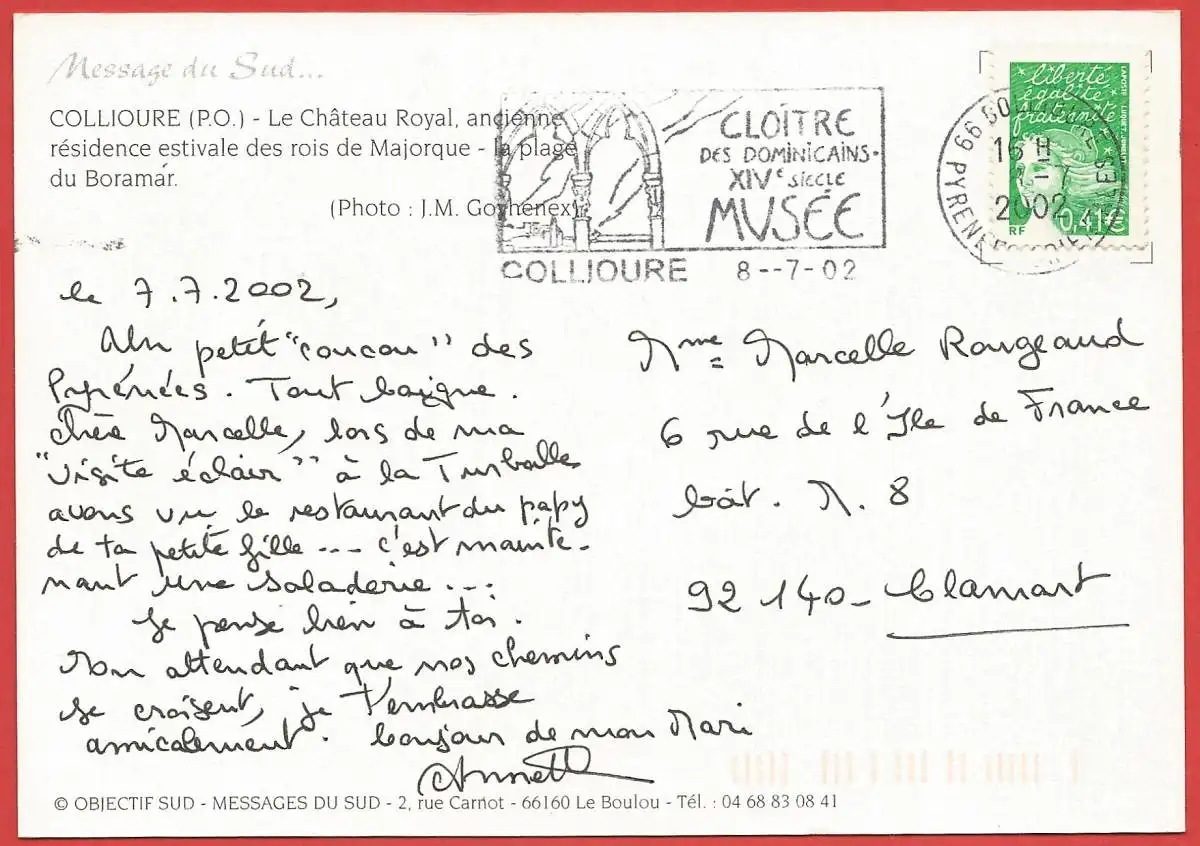 Message du Sud...
COLLIOURE (P.O.) - Le Château Royal, ancienne
résidence estivale des rois de Majorque - la plage
du Boramar.
(Photo : J.M. Goyhenex)
CLOÎTRE
DES DOMINICAINS.
XIVe SIECLE
MUSÉE
COLLIOURE 8--7-02
liberté
égalité
fraternité
LA POSTE
RF
0,41€
66 PYRENEES
16 H
2002
le 7.7.2002,
Un petit "coucou" des
Pyrénées. Tout baigne.
Chère Marcelle, lors de ma
"visite éclair" à la Turballe
avons vu le restaurant du papy
de ta petite fille --- c'est mainte-
nant une saladerie ...
Je pense bien à toi.
En attendant que nos chemins
se croisent, je t'embrasse
amicalement. bonjour de mon Mari
Annett
Mme Marcelle Rougeaud
6 rue de l'Ile de France
bât. N. 8
92 140 - Clamart
© OBJECTIF SUD - MESSAGES DU SUD - 2, rue Carnot - 66160 Le Boulou - Tél. : 04 68 83 08 41